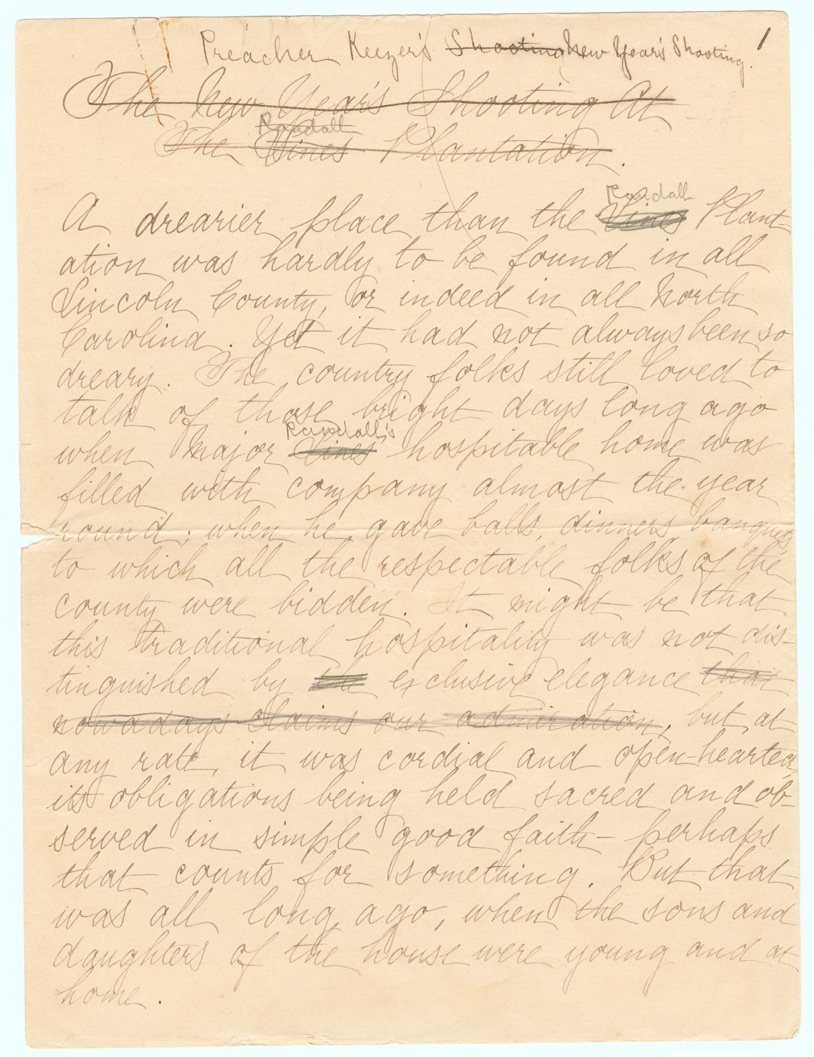 Preacher Keezer's Shooting New Year's Shooting. 1
The New Year's Shooting At
Randall
The Vines Plantation.
Randall
A drearier place than the Vines Plant
ation was hardly to be found in all
Lincoln County, or indeed in all North
Carolina. Yet it had not always been so
dreary. The country folks still loved to
talk of those bright days long ago
Randall's
when Major Vines' hospitable home was
filled with company almost the year
round; when he gave balls, dinners banquets
to which all the respectable folks of the
county were bidden. It might be that
this traditional hospitality was not dis-
tinguished by the exclusive elegance that
nowadays claims our admiration, but at
any rate, it was cordial and open-hearted,
its obligations being held sacred and ob-
served in simple good faith - perhaps
that counts for something. But that
was all long ago, when the sons and
daughters of the house were young and at
home.